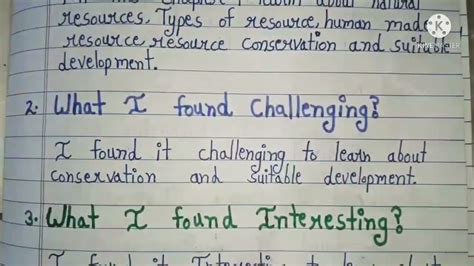 this chapter I learn about natural
resources, Types of resource, human made
resource, resource conservation and suitable
development.
2. What I found Challenging?
I found it challenging to learn about
conservation and suitable development.
3. What I found Interesting?
I found it Interesting to